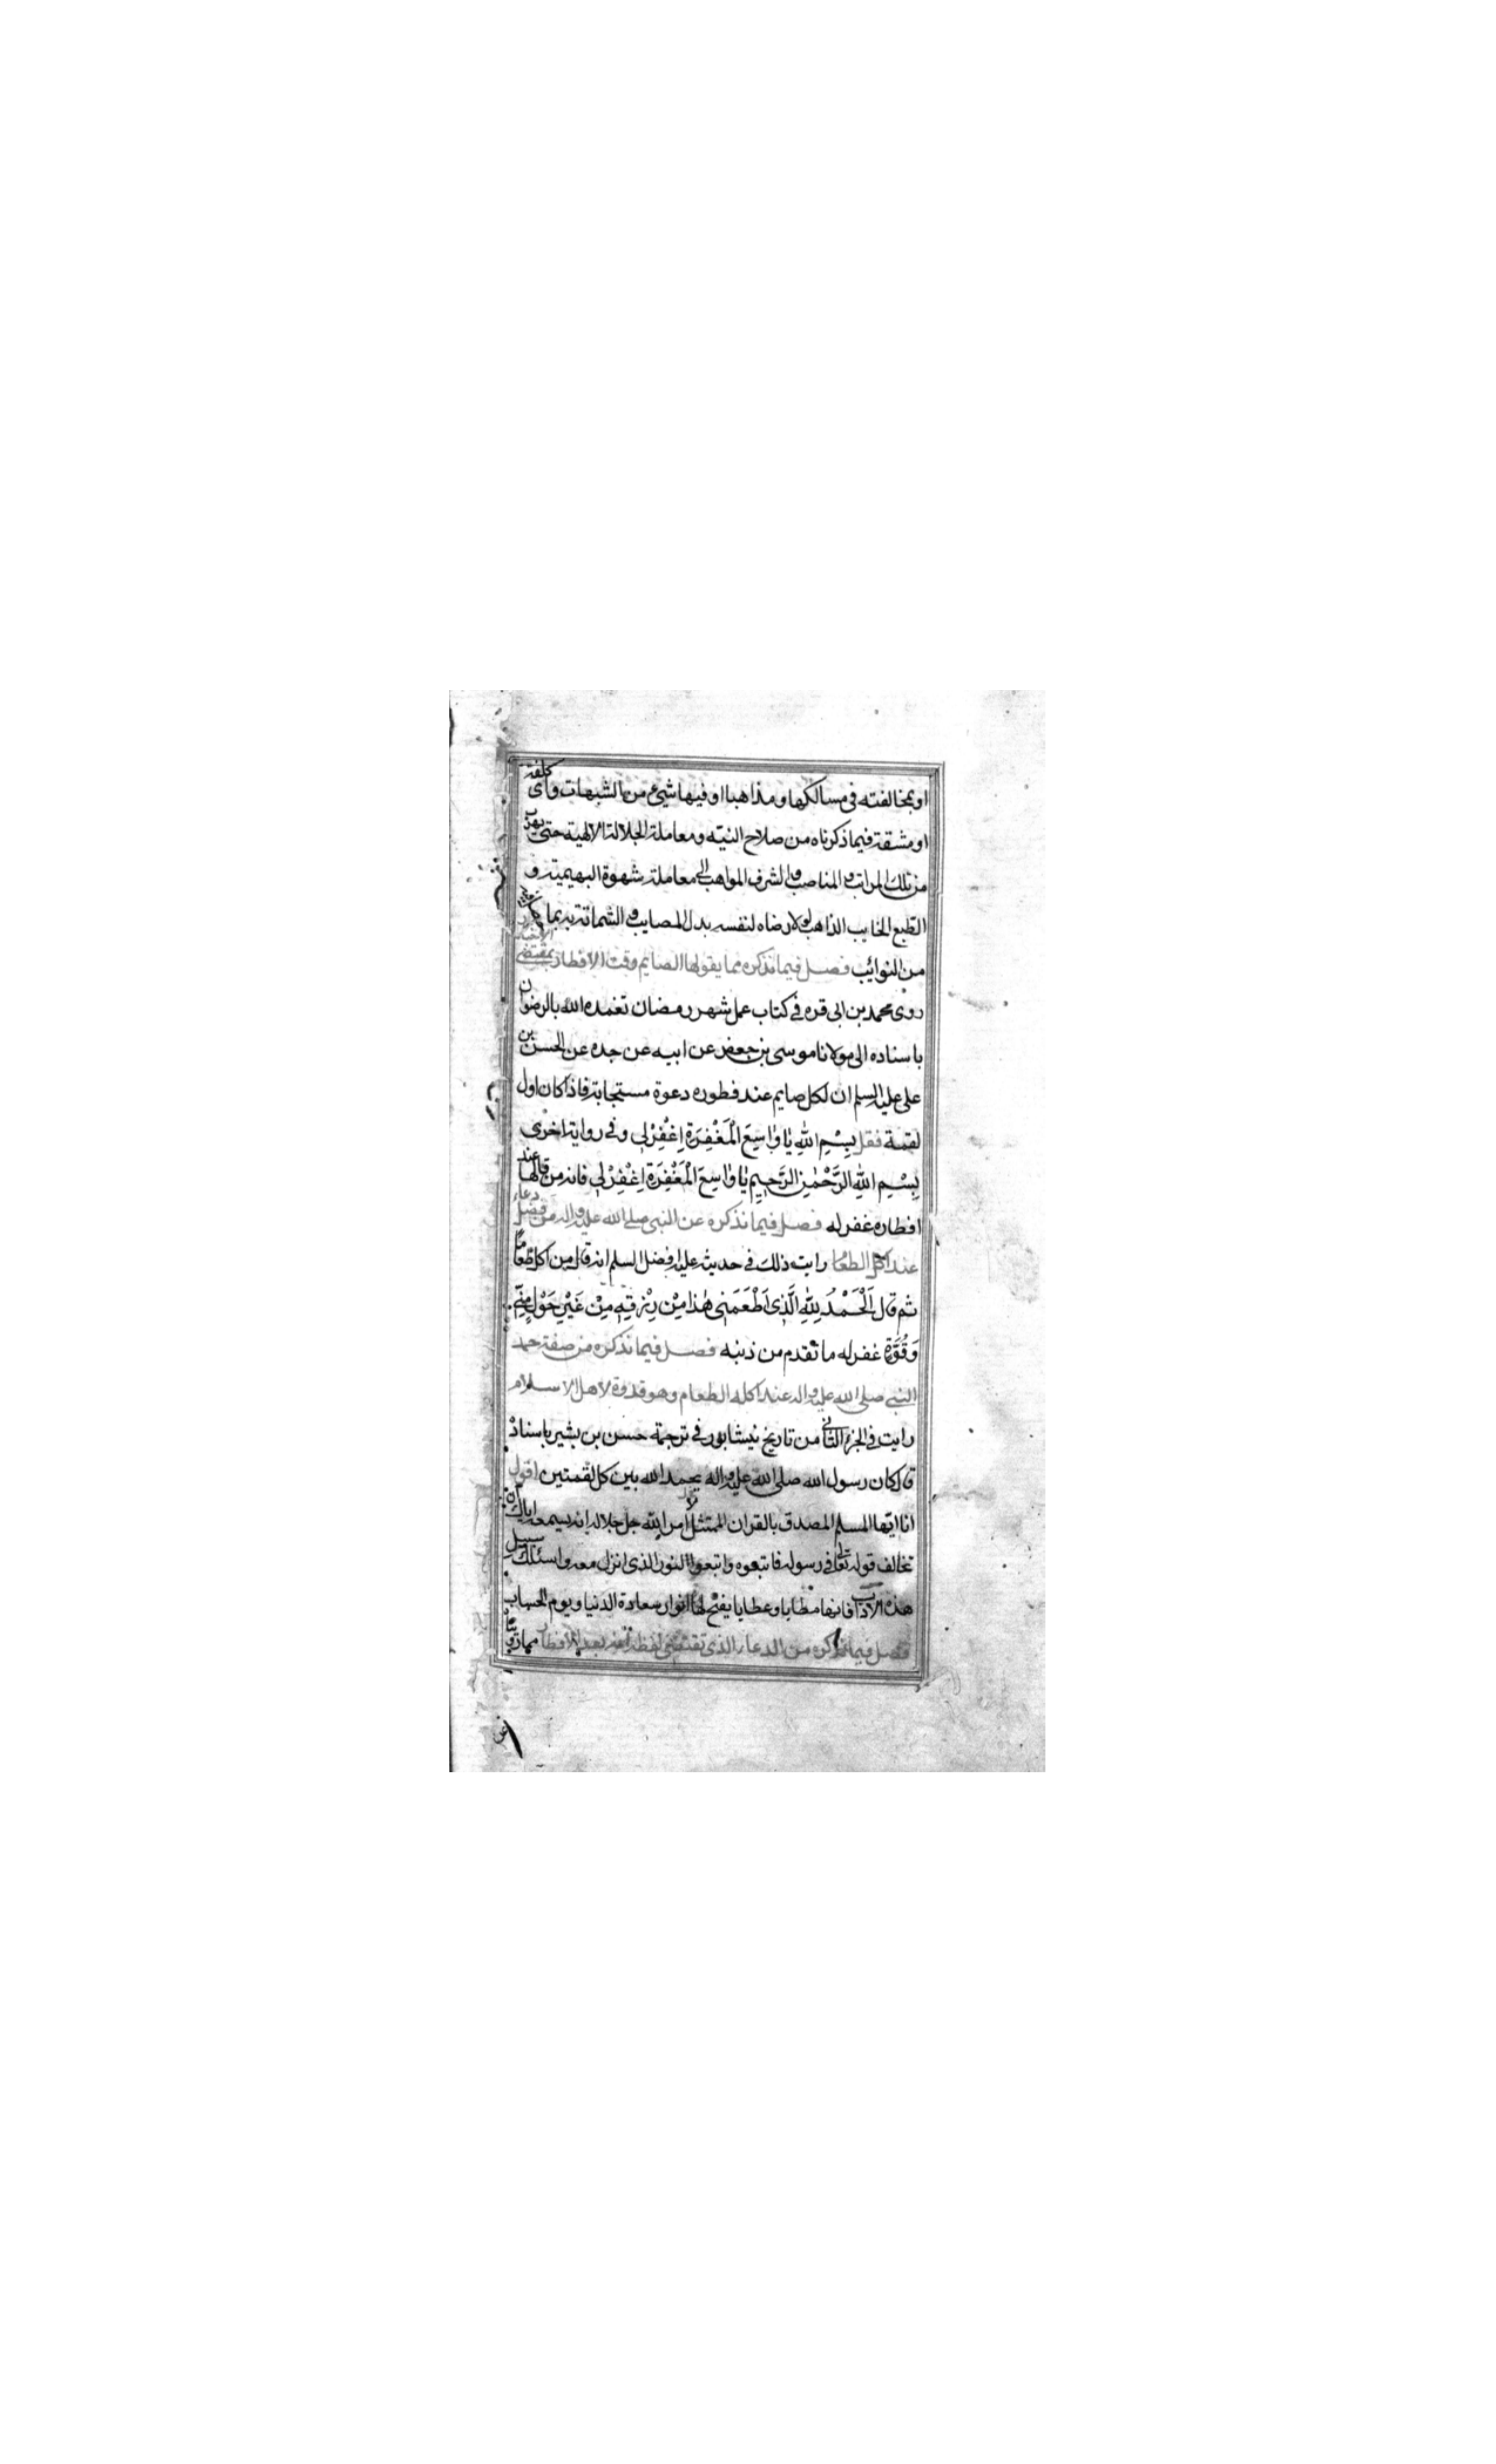 او بمخالفته في مسالكها ومذاهبا او فيها شئ من الشبهات واى كلفة
او مشقة فيما ذكرناه من صلاح النيّه ومعاملة الجلالة الالهية حتى يهرب
من تلك المراتب والمناصب والشرف المواهب الى معاملة شهوة البهيمية و
الطبع الخايب الذاهب لولا رضاه لنفسه بدل المصايب والشماتة به بما
من النوائب فصل فيما نذكره مما يقولها الصايم وقت الافطار بمقتضى الاخبار
روى محمد بن ابى قره في كتاب عمل شهر رمضان تغمده الله بالرضوان
باسناده الى مولانا موسى بن جعفر عن ابيه عن جده عن الحسن بن
على عليه السلم ان لكل صايم عند فطوره دعوة مستجابة فاذا كان اول
لقمة فقل بِسْمِ اللهِ يٰا وٰاسِعَ الْمَغْفِرَةِ اِغْفِرْلى وفي رواية اخرى
بِسْمِ اللهِ الرَّحْمٰنِ الرَّحِيمِ يٰا وٰاسِعَ الْمَغْفِرَةِ اِغْفِرْلى فانه من قالها عند
افطاره غفر له فصل فيما نذكره عن النبي صلى الله عليه واله من فضل دعاء
عند اكل الطعام رايت ذلك في حديثه عليه افضل السلم انه قال من اكل طعامًا
ثم قال اَلْحَمْدُ لِلّٰهِ الَّذى اَطْعَمَنى هٰذا مِنْ رِزْقِهِ مِنْ غَيْرِ حَوْلٍ مِنّى
وَقُوَّةٍ غفر له ما تقدم من ذنبه فصل فيما نذكره من صفة حمد
النبي صلى الله عليه واله عند اكله الطعام وهو قدوة لاهل الاسلام
رايت في الجزء الثاني من تاريخ نيشابور في ترجمة حسن بن بشير باسناده
قال كان رسول الله صلى الله عليه واله يحمد الله بين كل لقمتين اقول
انا ايها المسلم المصدق بالقران الممتثل لامر الله جل جلاله اياك ان
تخالف قوله تعالى في رسوله فاتبعوه واتبعوا النور الذى انزل معه واسئلك سبيل
هذه الاداب فانها مطايا وعطايا يفتح لها انوار سعادة الدنيا ويوم الحساب
فصل فيما نذكره من الدعاء الذى تقتضى لفظه انه بعد الافطار مما